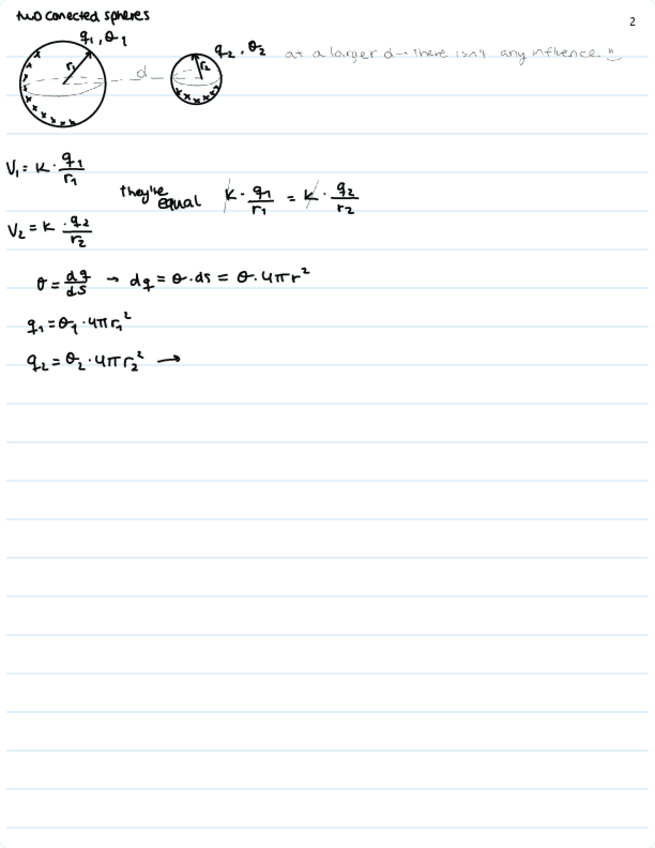 two conected spheres
2
q₁, θ₁
q₂, θ₂ at a larger d → there isn't any influence "
r₁ d r₂
V₁ = K · q₁/r₁
they're equal K · q₁/r₁ = K · q₂/r₂
V₂ = K · q₂/r₂
θ = dq/ds → dq = θ · ds = θ · 4πr²
q₁ = θ₁ · 4πr₁²
q₂ = θ₂ · 4πr₂² →